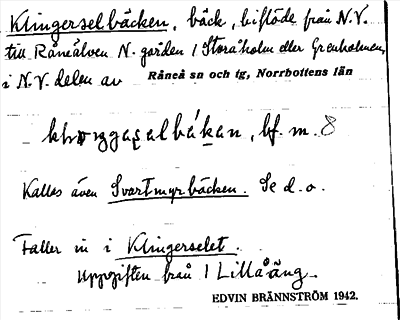 Klingerselbäcken, bäck, biflöde från N.V.
till Råneälven N. gården 1 Storåholm eller Grenholmen,
i N.V. delen av Råneå sn och tg, Norrbottens län
bf. m. 8
Kallas även Svartmyrbäcken. Se d. o.
Faller in i Klingerselet.
Uppgiften från 1 Lillåäng.
EDVIN BRÄNNSTRÖM 1942.